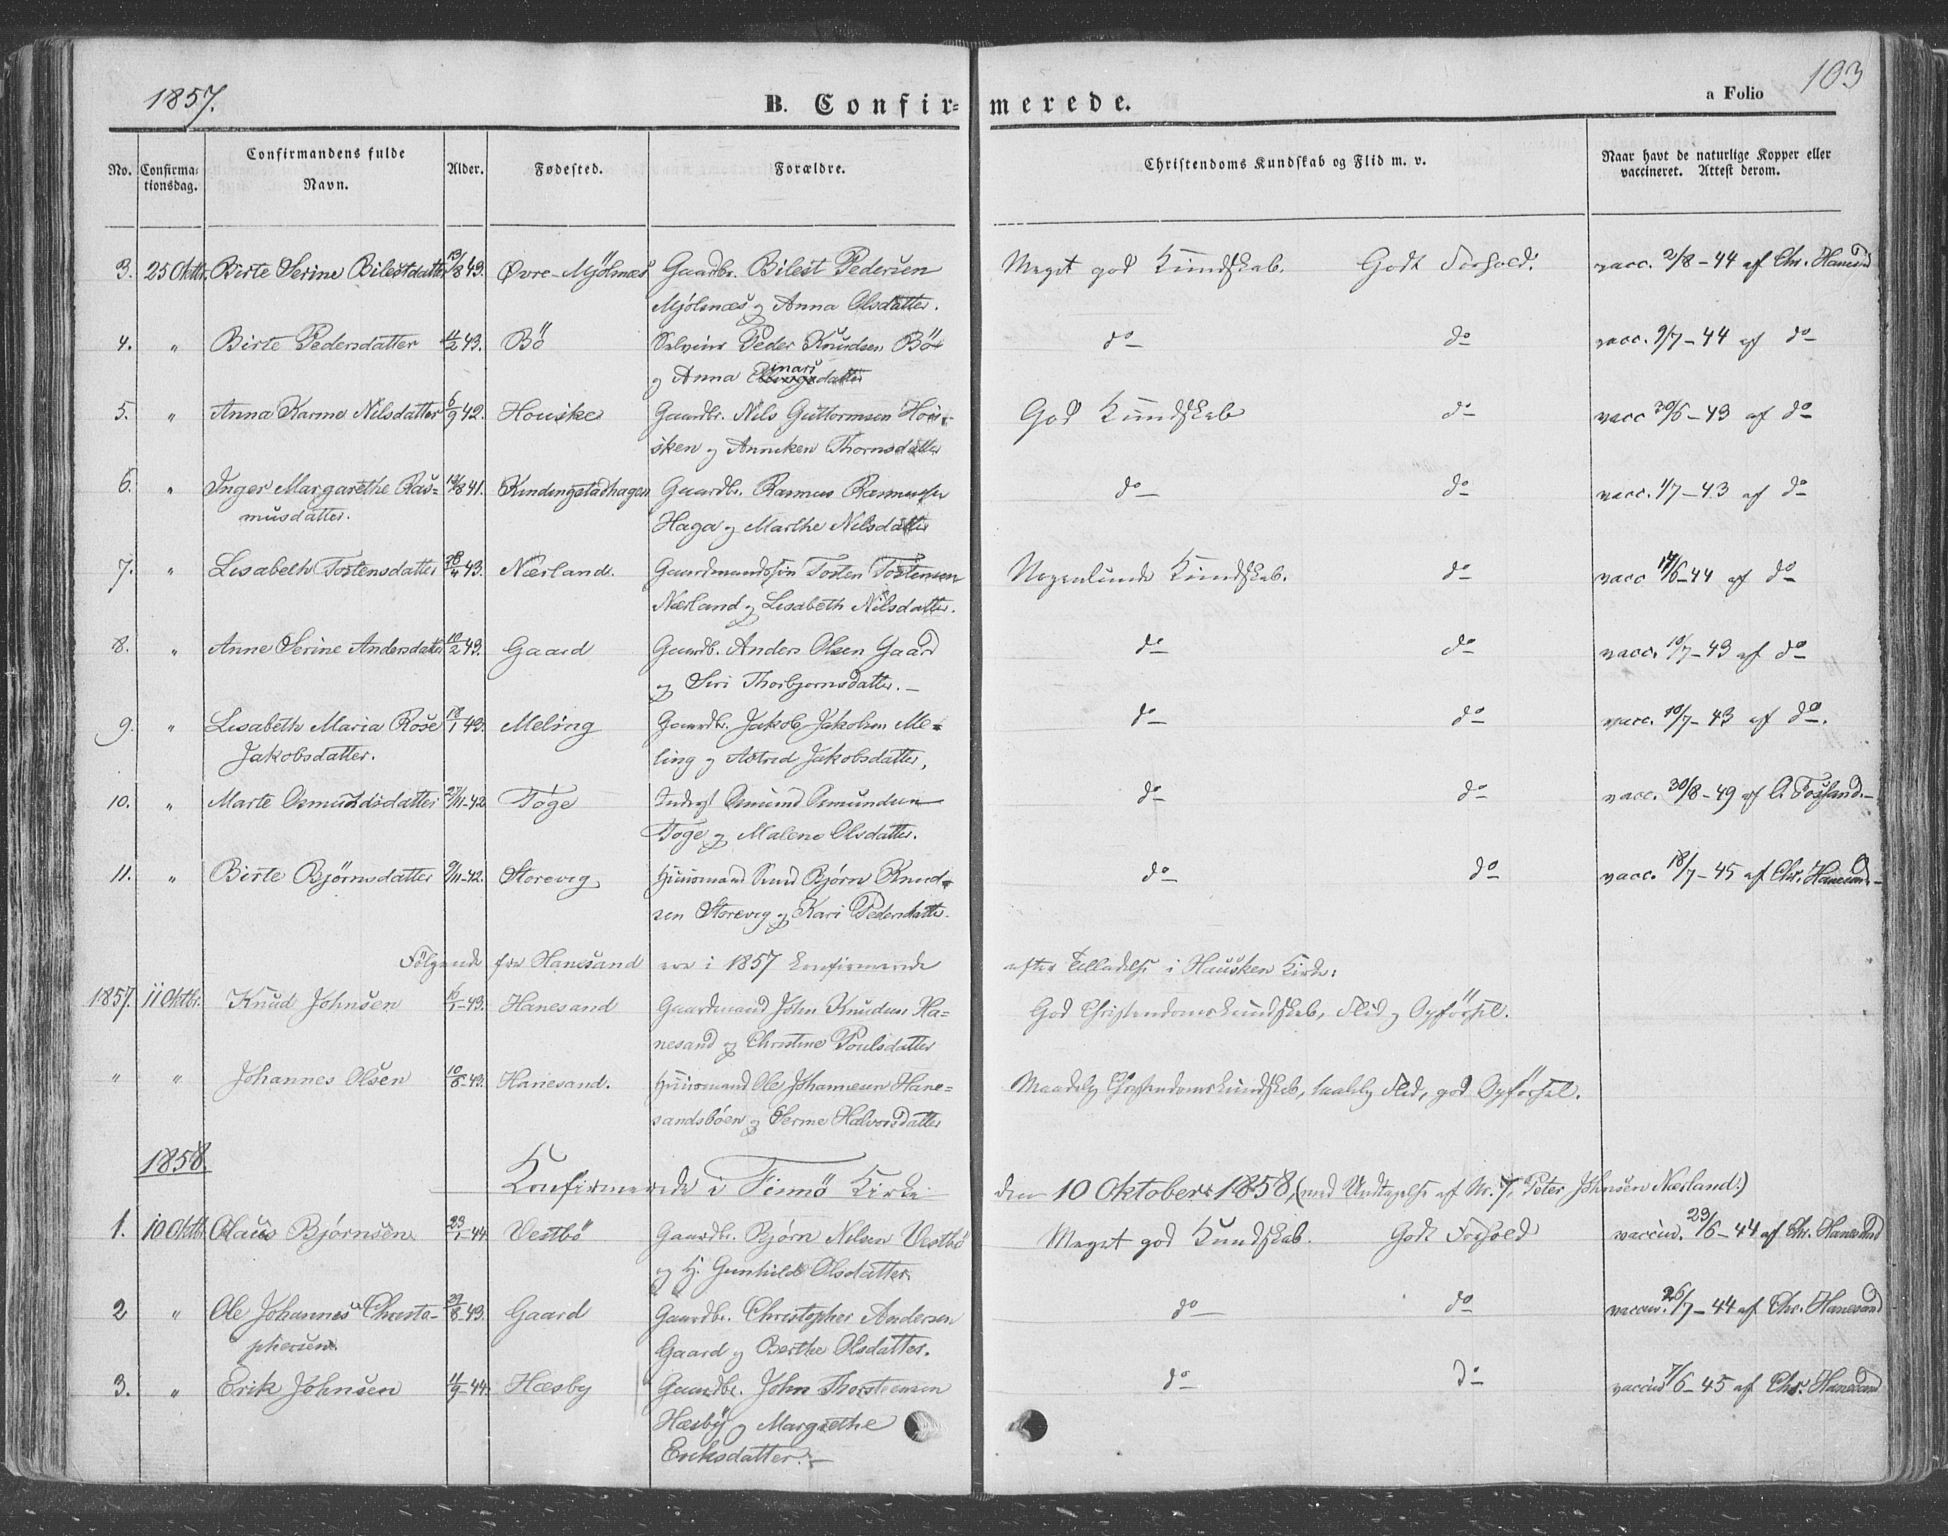 1857.
B. Confir-
merede.
a Folio 103
No.
Confirma-
tionsdag.
Confirmandens fulde
Navn.
Alder.
Fødested.
Forældre.
Christendoms Kundskab og Flid m. v.
Naar havt de naturlige Kopper eller
vaccineret. Attest derom.
3. 25 Oktbr. Birte Serine Bilestdatter 13/8 43. Øvre-Mjölsnæs Gaardbr. Bilest Pedersen Meget god Kundskab. Godt Forhold. vacc. 2/8-44 af Chr. Hanesand
Mjölsnæs og Anna Olsdatter.
4. " Birte Pedersdatter 11/2 43. Bö Peder Knudsen Bö do do vacc. 9/7-44 af do
og Anna
5. " Anna Karine Nilsdatter 6/9 42. Houske Gaardbr. Nils Guttormsen Hou- God Kundskab do vacc 30/6-43 af do
sken og Anneken Thornsdatter
6. " Inger Margarethe Ras- 19/8 41. Rendingstadhagen Gaardbr. Rasmus Rasmussen do do vacc. 1/7-43 af do
musdatter. Haga og Marthe Nilsdatter
7. " Lisabeth Tostensdatter 28/4 43. Nærland. Gaardmandssön Tosten Tostensen Nogenlunde Kundskab. do vacc 14/6-44 af do
Nærland og Lisabeth Nilsdatter.
8. " Anne Serine Andersdatter 10/2 43. Gaard Gaardb. Anders Olsen Gaard do do vacc. 10/7-43 af do
og Siri Thorbjornsdatter.-
9. " Lisabeth Maria Rose 18/1 43. Meling Gaardbr. Jakob Jakobsen Me- do do vacc. 10/7-43 af do.
Jakobsdatter. ling og Astred Jakobsdatter,
10. " Marte Osmundsdatter 27/11-42 Toge Osmund Osmundsen do do vacc. 30/8-49 af O. Fosland.-
Toge og Malene Olsdatter.
11. " Birte Bjørnsdatter 9/11-42. Storevig Huusmand Bjørn Knud- do do vacc. 18/7-45 af Chr. Hanesand.-
sen Storevig og Kari Pedersdatter.
Følgende fra Hanesand ere i 1857 konfirmerede efter Tilladelse i Hausken Kirke:
1857. 11 Oktbr. Knud Johnsen 16/1-43. Hanesand Gaardmand John Knudsen Ha- God Christendomskundskab, Flid og Opförsel.
nesand og Christine Poulsdatter
" " Johannes Olsen 10/8-43. Hanesand. Huusmand Ole Johannesen Hane- Maadelig Christendomskundskab, taalelig Flid, god Opförsel.
sandsböen og Serine Halvorsdatter
1858 Konfirmerede i Finnö Kirke den 10 Oktober 1858, (med Undtagelse af Nr. 7, Peter Johnsen Nærland.)
1. 10 Oktbr. Olaus Bjørnsen. 23/1-44 Vestbö Gaardbr. Bjørn Nilsen Vestbö Meget god Kundskab. Godt Forhold vaccin. 29/6-44 af Chr. Hanesand
og H. Gunhilde Olsdatter.
2 " Ole Johannes Christo- 29/8-43. Gaard Gaardbr. Christopher Andersen do do vaccin. 26/7-44 af Chr. Hanesand
phersen. Gaard og Berthe Olsdatter.
3. " Erik Johnsen 11/9-44. Hæsby Gaardbr. John Thorsteensen do do vaccin 7/6-45 af Chr. Hanesand
Hæsby og Margrethe
Eriksdatter.-